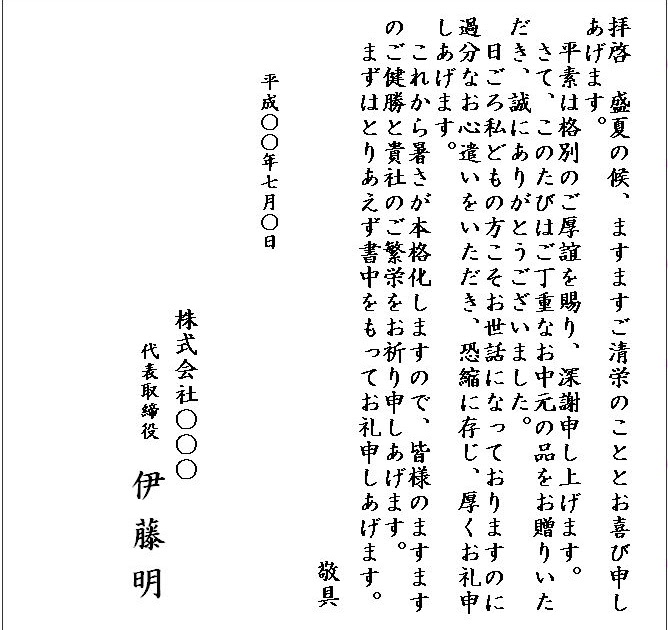 拝啓　盛夏の候、ますますご清栄のこととお喜び申し
あげます。
　平素は格別のご厚誼を賜り、深謝申し上げます。
　さて、このたびはご丁重なお中元の品をお贈りいた
だき、誠にありがとうございました。
　日ごろ私どもの方こそお世話になっておりますのに
過分なお心遣いをいただき、恐縮に存じ、厚くお礼申
しあげます。
　これから暑さが本格化しますので、皆様のますます
のご健勝と貴社のご繁栄をお祈り申しあげます。
　まずはとりあえず書中をもってお礼申しあげます。
敬具
平成〇〇年七月〇日
株式会社〇〇〇
代表取締役　伊藤明